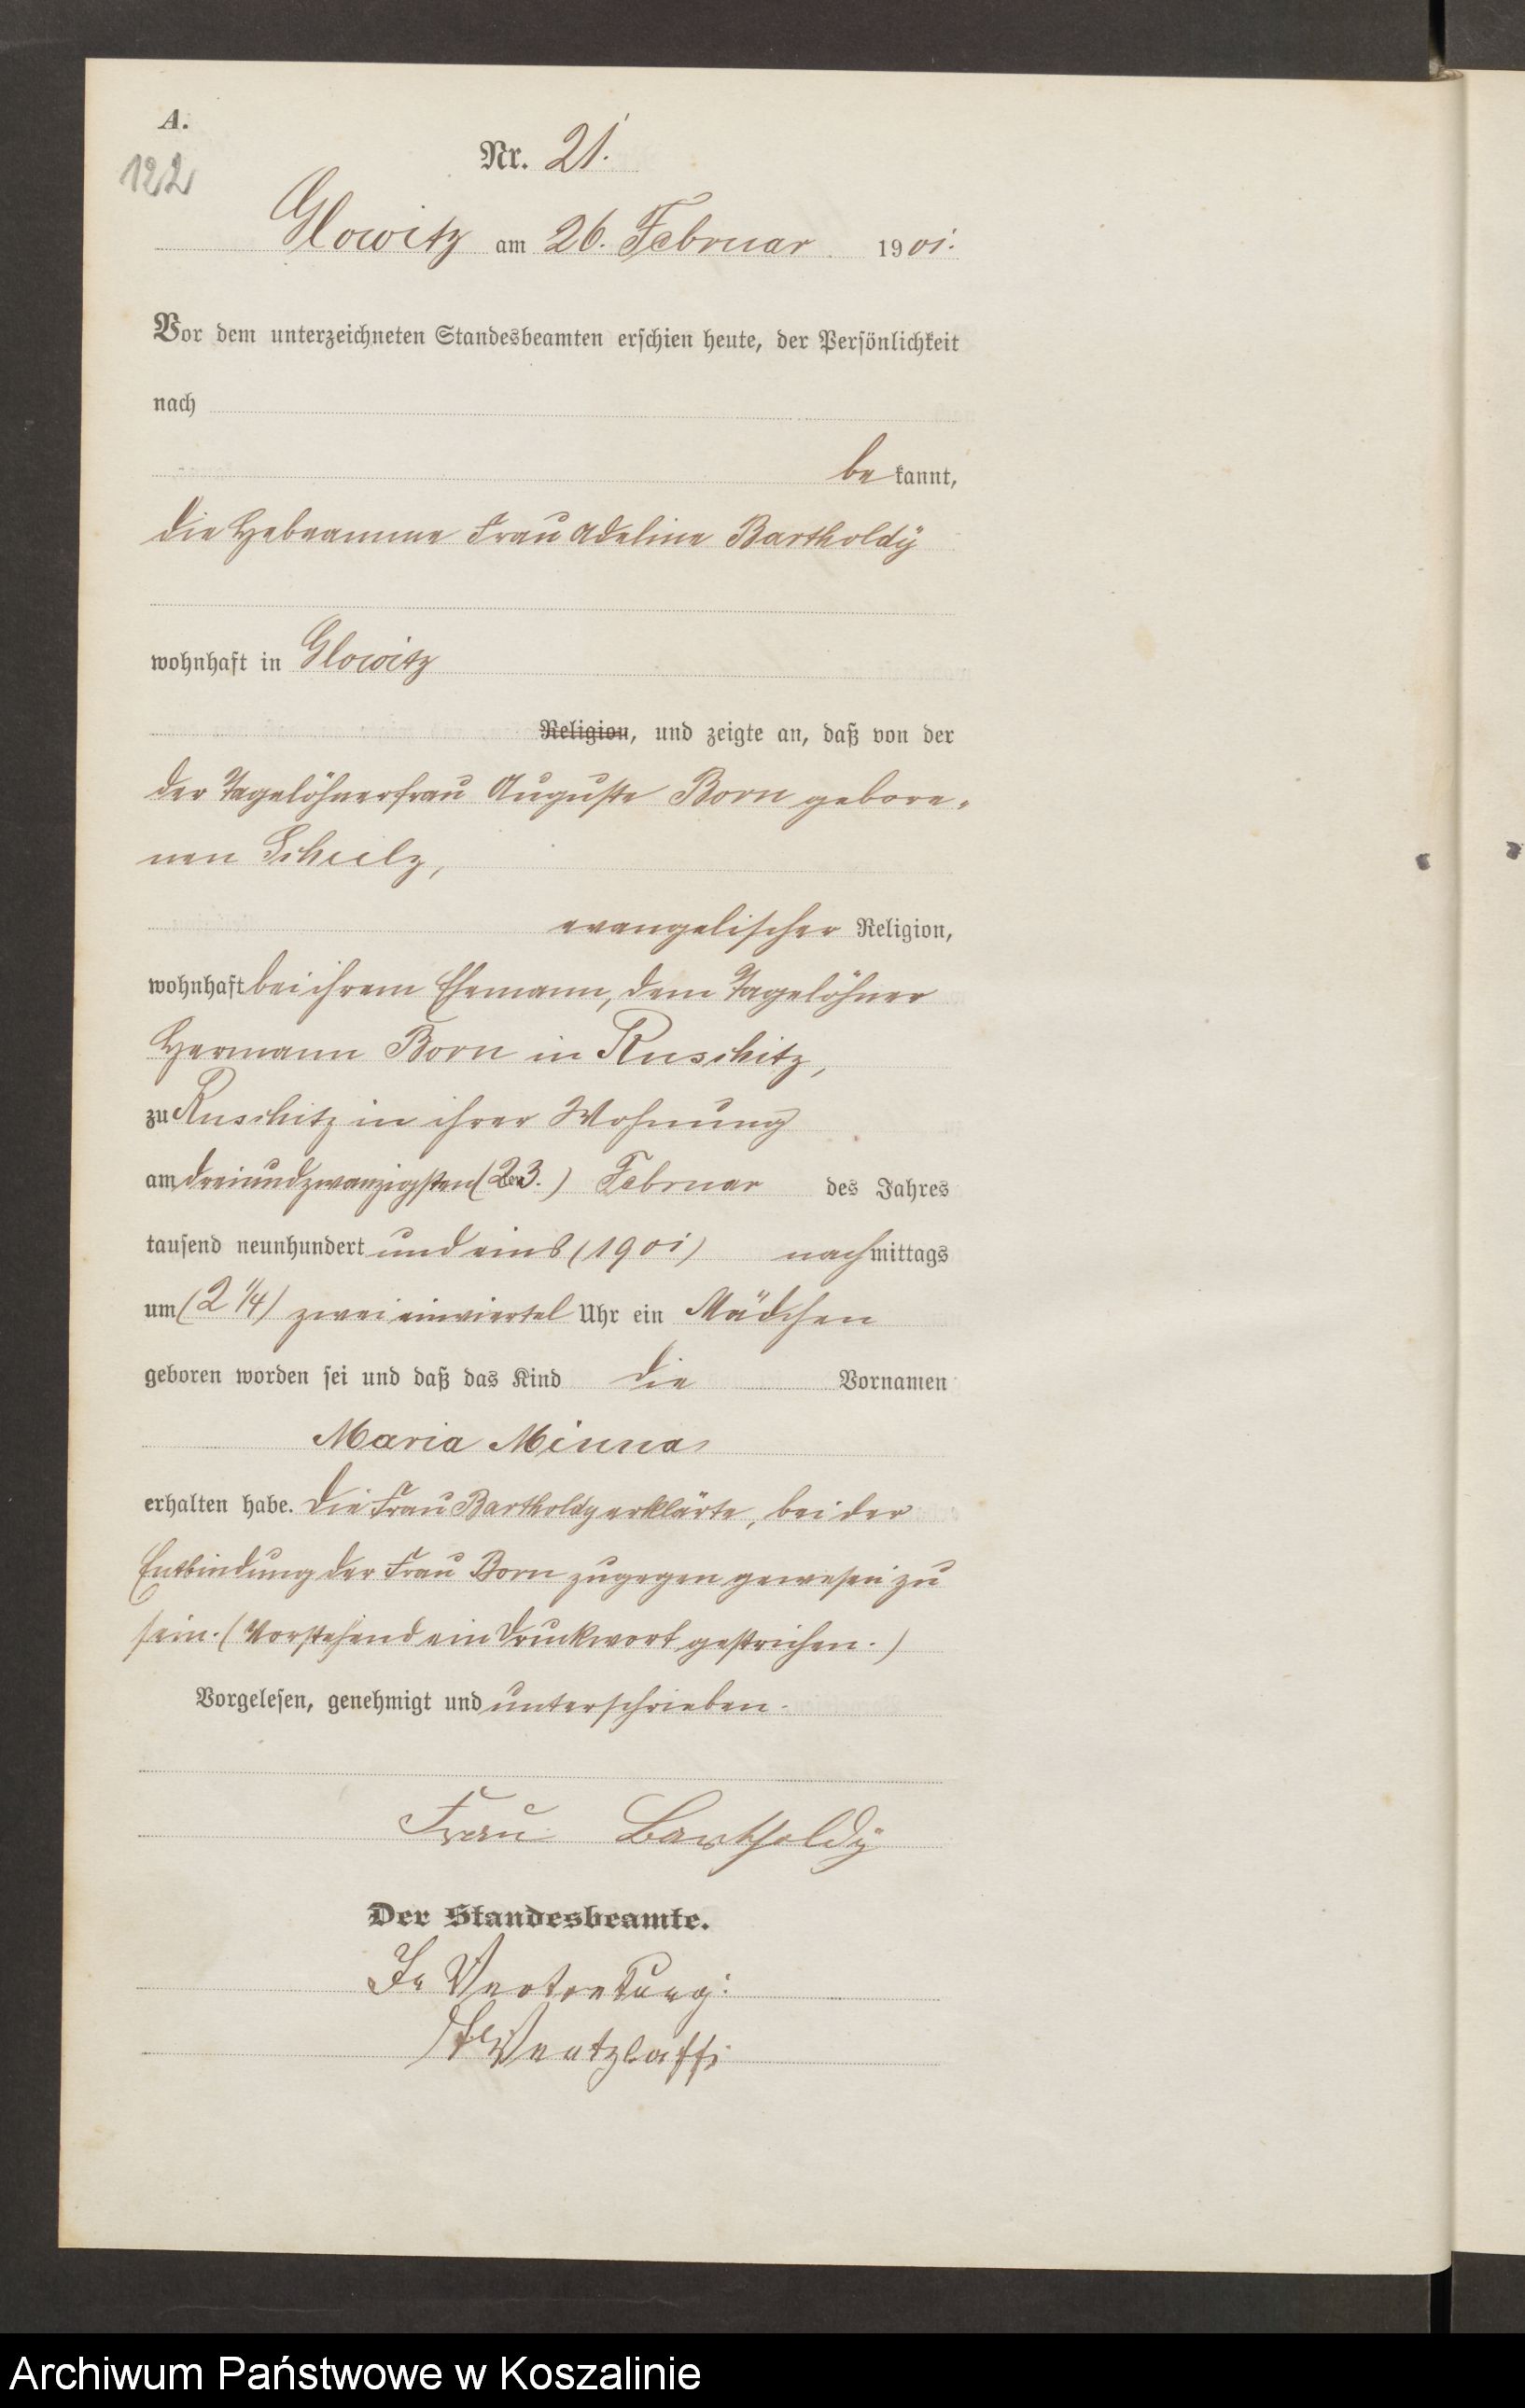 A.
122
Nr. 21.
Glowitz am 26. Februar 1901.
Vor dem unterzeichneten Standesbeamten erschien heute, der Persönlichkeit
nach
be kannt,
die Hebeamme Frau Adeline Bartholdÿ
wohnhaft in Glowitz
Religion, und zeigte an, daß von der
der Tagelöhnerfrau Auguste Born gebore-
nen Schielz,
evangelischer Religion,
wohnhaft bei ihrem Ehemann, dem Tagelöhner
Hermann Born in Ruschitz,
zu Ruschitz in ihrer Wohnung
am dreiundzwanzigsten (23.) Februar des Jahres
tausend neunhundert und eins (1901) nachmittags
um (2 1/4) zwei einviertel Uhr ein Mädchen
geboren worden sei und daß das Kind die Vornamen
Maria Minna
erhalten habe. Die Frau Bartholdy erklärte, bei der
Entbindung der Frau Born zugegen gewesen zu
sein. (Vorstehend ein Druckwort gestrichen.)
Vorgelesen, genehmigt und unterschrieben.
Frau Bartholdÿ
Der Standesbeamte.
In Vertretung:
Wentzlaff.
Archiwum Państwowe w Koszalinie